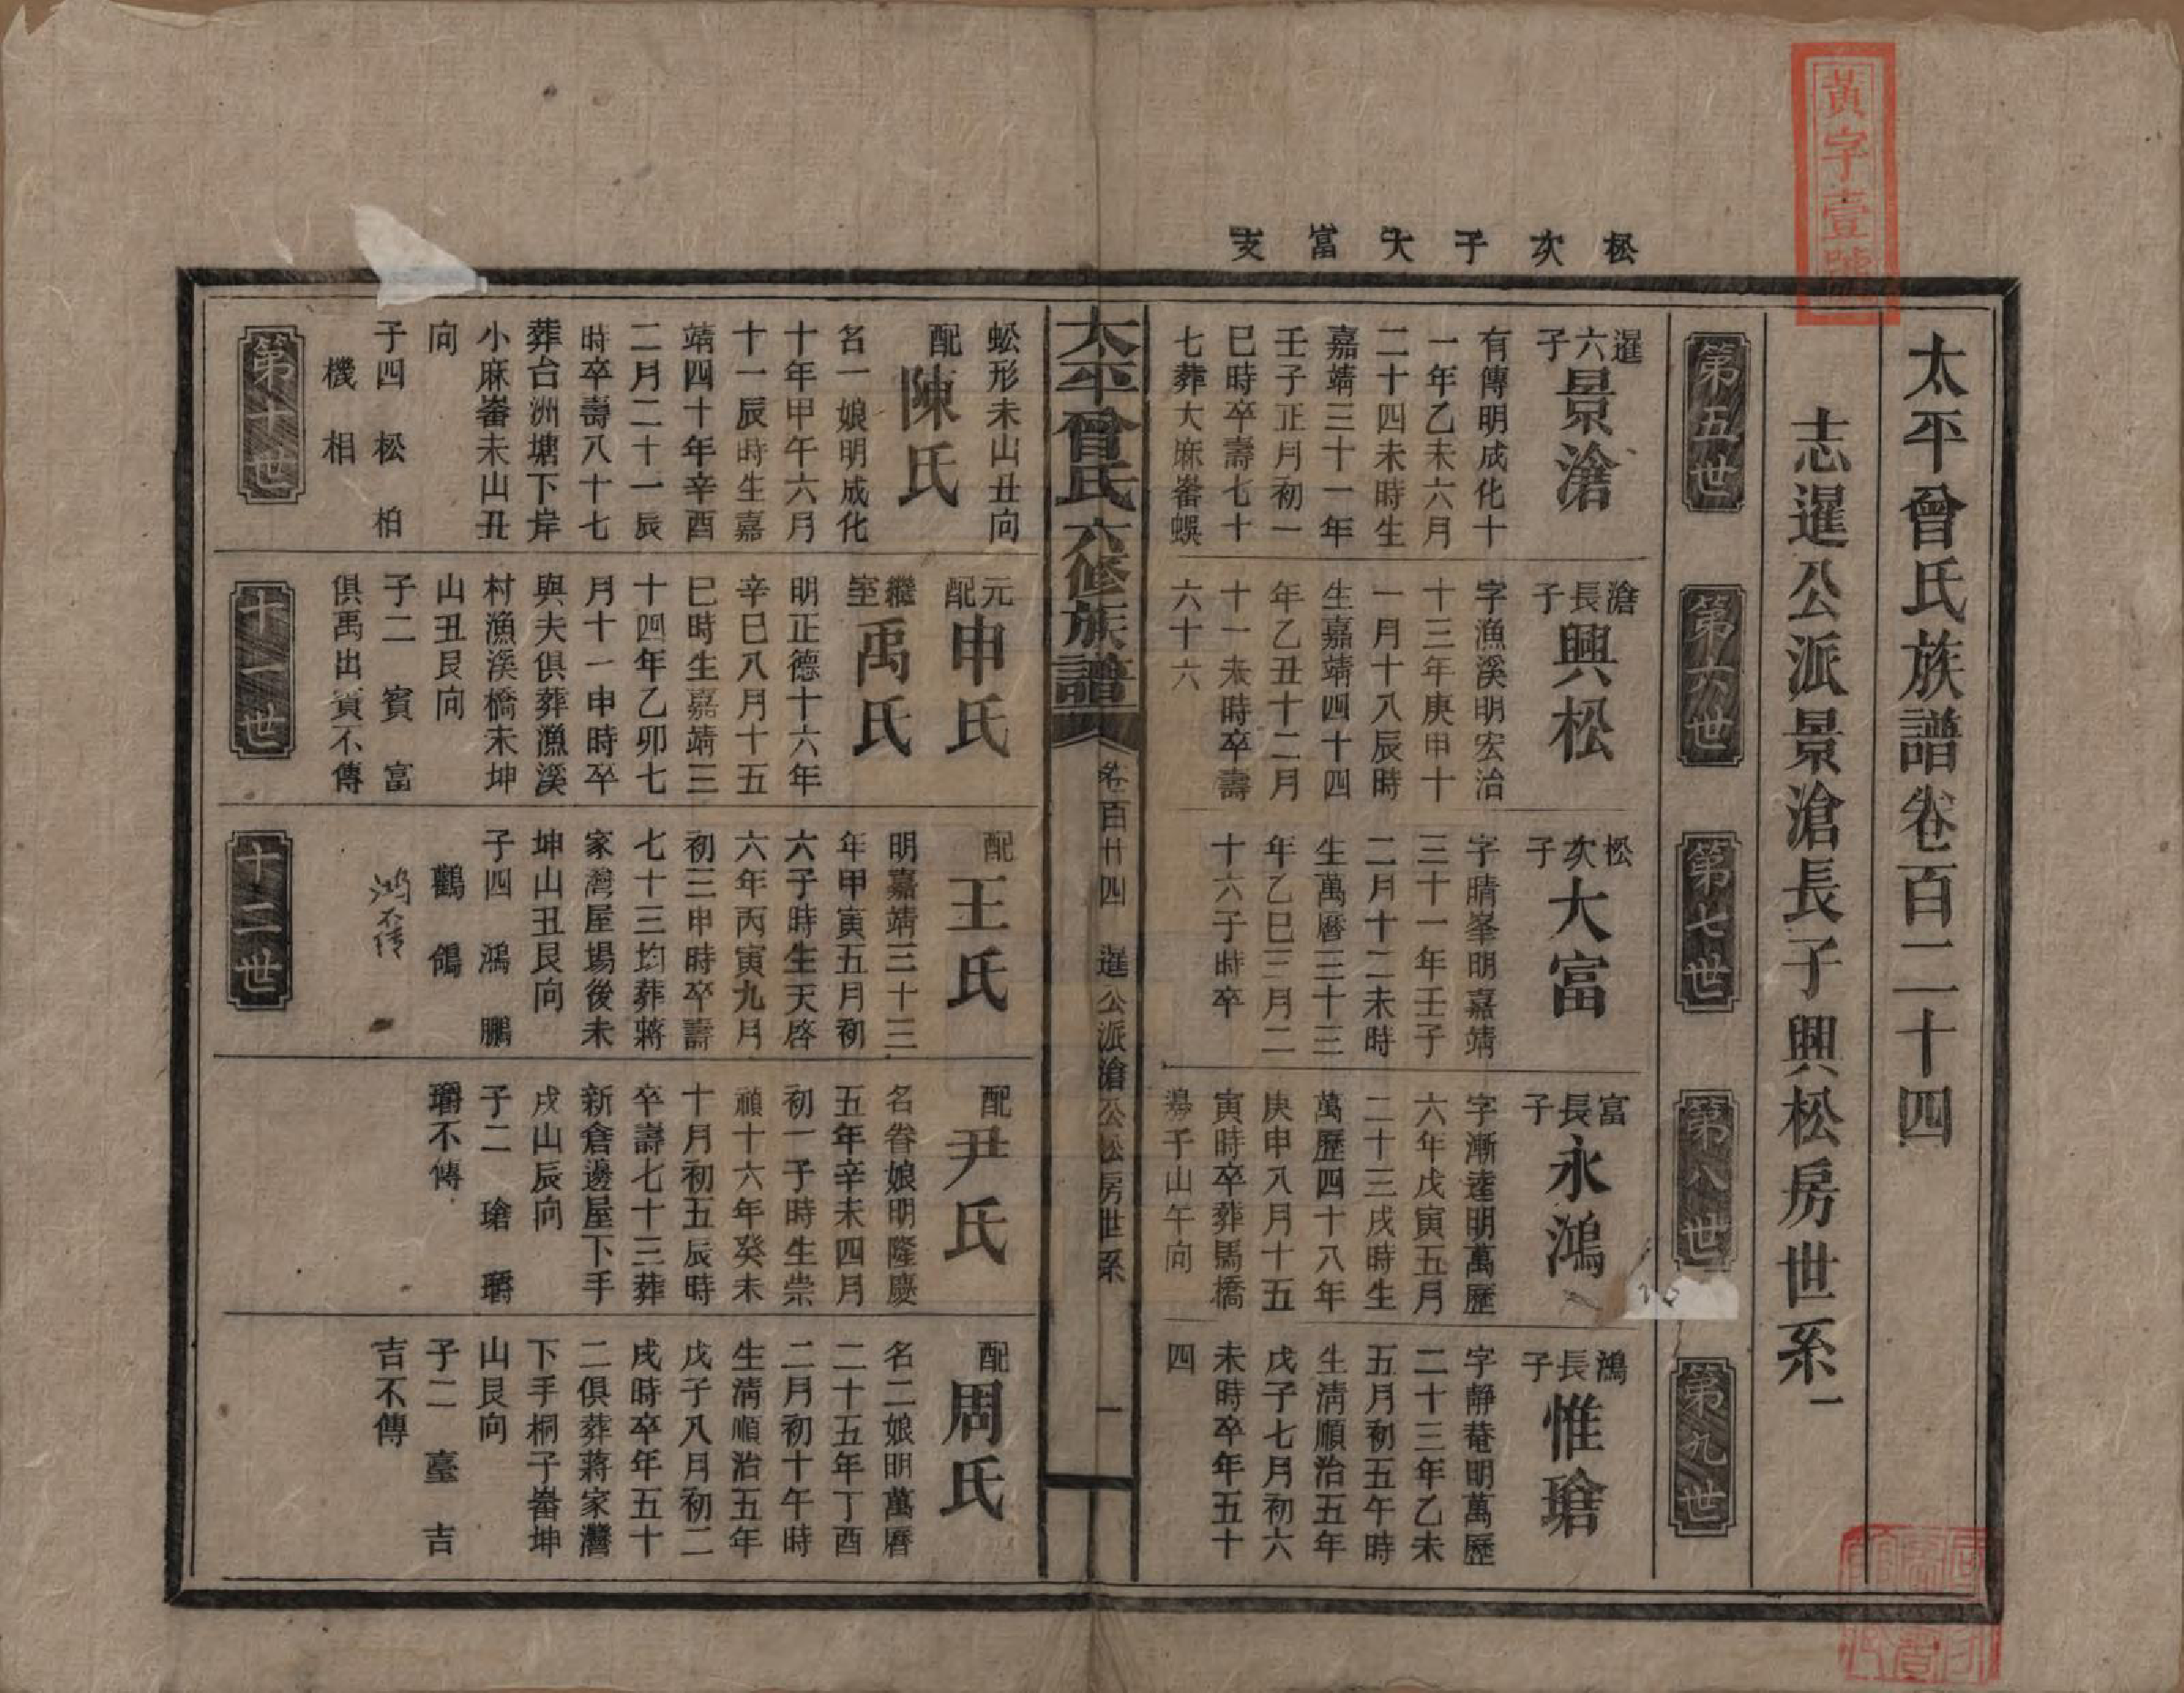 黃字壹號
太平曾氏族譜卷百二十四
志暹公派景滄長子興松房世系一
松次子大富支
第五世
第六世
第七世
第八世
第九世
暹六子
景滄
有傳明成化十
一年乙未六月
二十四未時生
嘉靖三十一年
壬子正月初一
巳時卒壽七十
七葬大麻畬蜈
滄長子
興松
字漁溪明宏治
十三年庚申十
一月十八辰時
生嘉靖四十四
年乙丑十二月
十一未時卒壽
六十六
松次子
大富
字晴峯明嘉靖
三十一年壬子
二月十二未時
生萬曆三十三
年乙巳三月二
十六子時卒
富長子
永鴻
字漸逵明萬歷
六年戊寅五月
二十三戌時生
萬歷四十八年
庚申八月十五
寅時卒葬馬橋
子山午向
鴻長子
惟瑲
字靜菴明萬歷
二十三年乙未
五月初五午時
生清順治五年
戊子七月初六
未時卒年五十
四
太平曾氏六修族譜
卷百廿四 暹公派滄公松房世系
一
蚣形未山丑向
配陳氏
名一娘明成化
十年甲午六月
十一辰時生嘉
靖四十年辛酉
二月二十一辰
時卒壽八十七
葬台洲塘下岸
小麻畬未山丑
向
子四 松 柏
機 相
元配申氏
繼室禹氏
明正德十六年
辛巳八月十五
巳時生嘉靖三
十四年乙卯七
月十一申時卒
與夫俱葬漁溪
村漁溪橋未坤
山丑艮向
子二 賓 富
俱禹出賓不傳
配王氏
明嘉靖三十三
年甲寅五月初
六子時生天啓
六年丙寅九月
初三申時卒壽
七十三均葬蔣
家灣屋場後未
坤山丑艮向
子四 鴻 鵬
鸛 鴿
鴻不傳
配尹氏
名眷娘明隆慶
五年辛未四月
初一子時生崇
禎十六年癸未
十月初五辰時
卒壽七十三葬
新倉邊屋下手
戌山辰向
子二 瑲 瓋
瓋不傳
配周氏
名二娘明萬曆
二十五年丁酉
二月初十午時
生清順治五年
戊子八月初二
戌時卒年五十
二俱葬蔣家灣
下手桐子畬坤
山艮向
子二 臺 吉
吉不傳
第十世
十一世
十二世